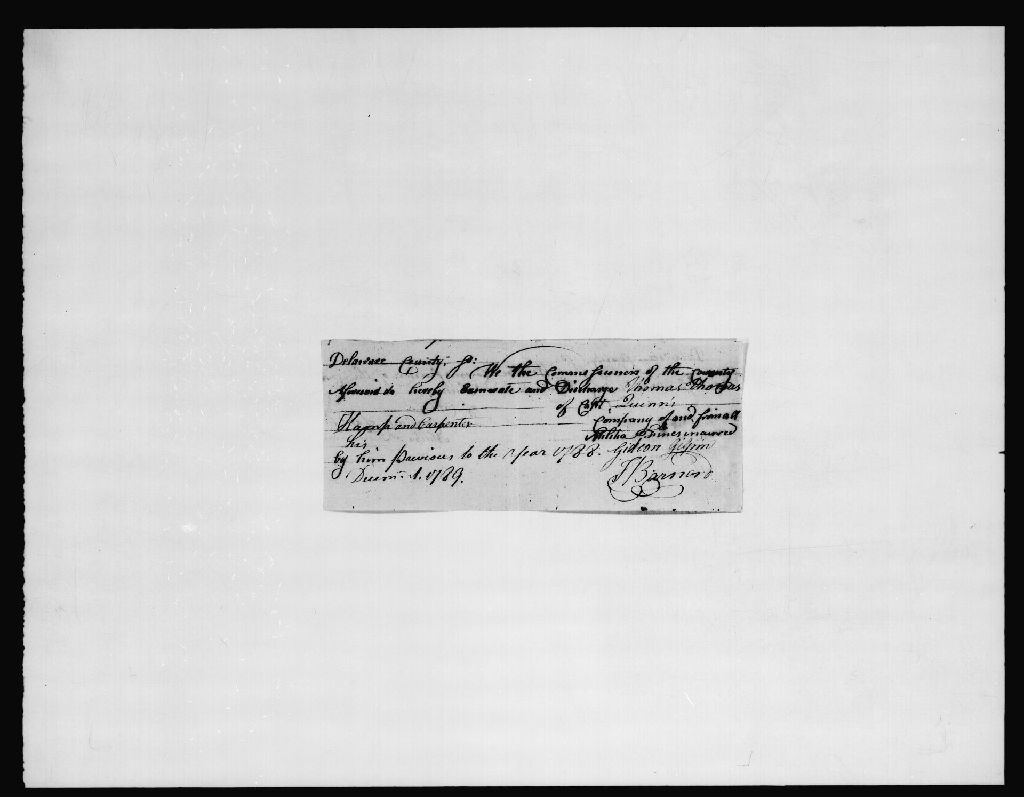 Delaware County ss: We the Commissioners of the County
Aforesaid do hereby Exonerate and Discharge Thomas Thomas
of Capt Quinn's
Kamp and Carpenter Company of and from all
his Militia Fines incurred
by him previous to the year 1788. Gideon
Decmr. 1. 1789. J Barnard